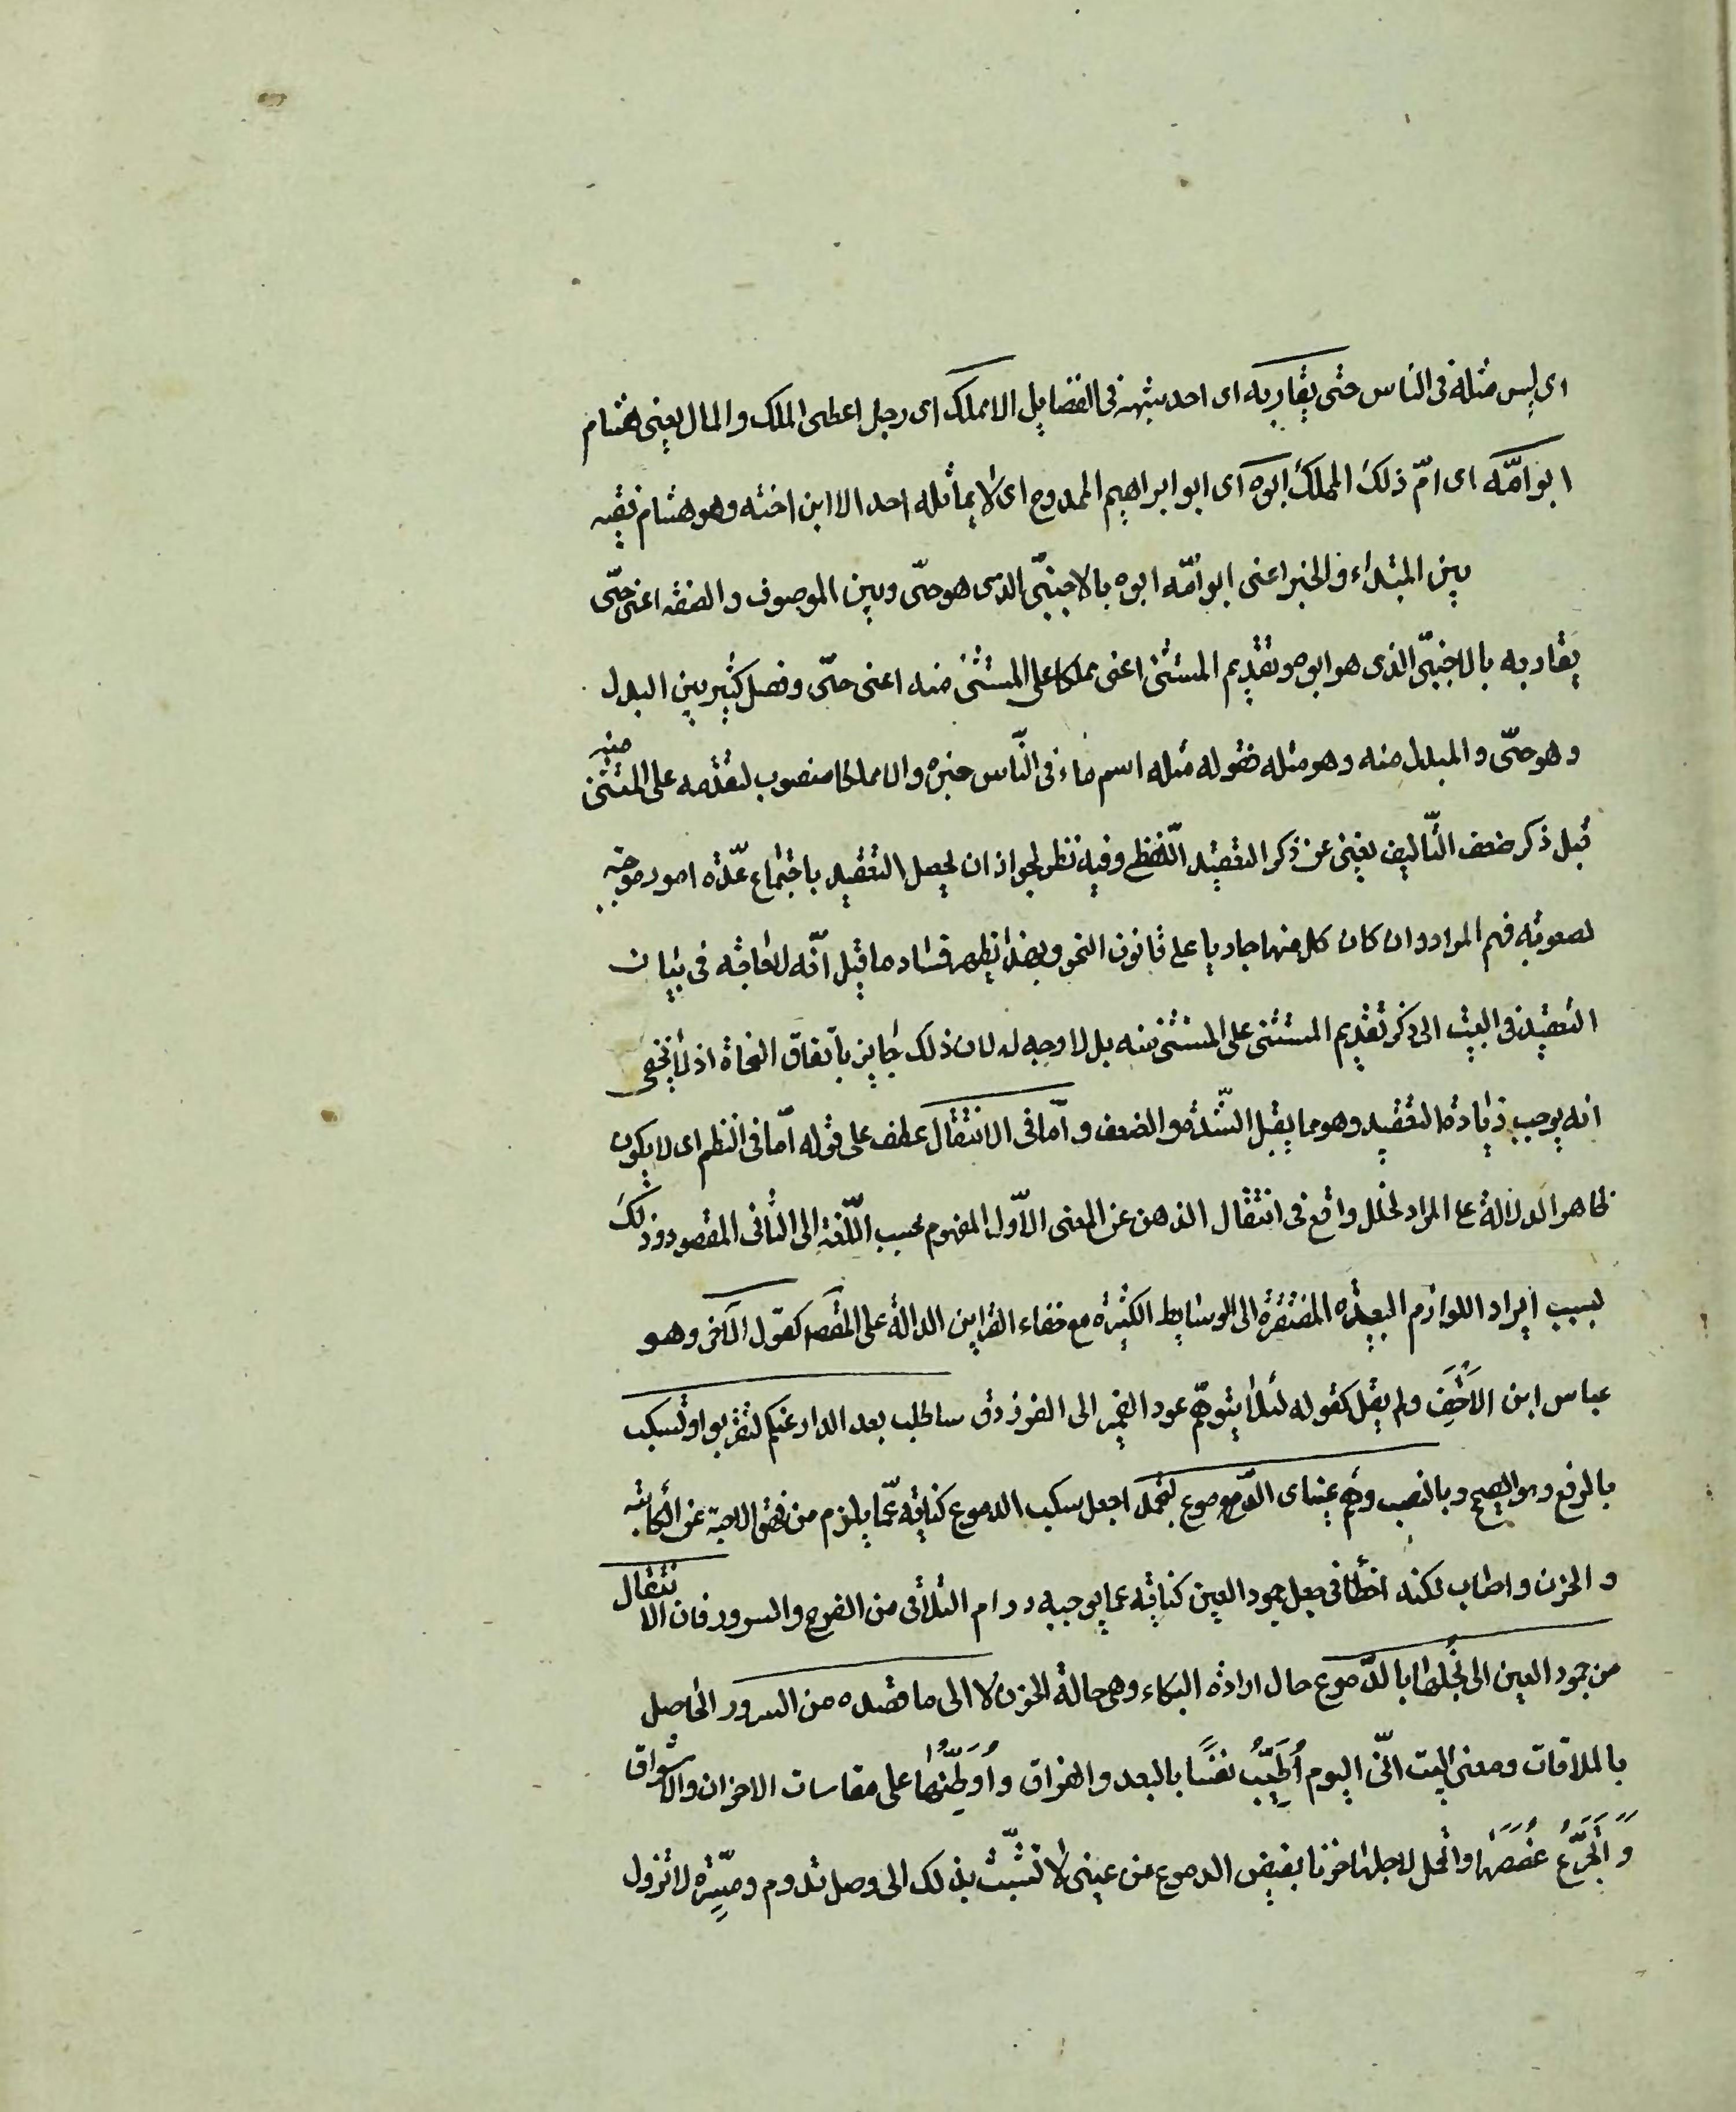 ای لیس مثله فی الناس حتی یقاربه ای احد یشبهه فی الفضایل الا مملک ای رجل اعطی الملک والمال یعنی هشام
ابو امّه ای امّ ذلک المملک ابوه ای ابو ابراهیم الممدوح ای لا یماثله احد الا ابن اخته وهو هشام ففیه
بین المبتداء والخبر اعنی ابو امّه ابوه بالاجنبیّ الذی هو حیّ وبین الموصوف والصفه اعنی حیّ
یقاربه بالاجنبیّ الذی هو ابوه وتقدیم المستثنی اعنی مملکا علی المستثنی منه اعنی حیّ وفصل کثیر بین البدل
وهو حیّ والمبدل منه وهو مثله فقوله مثله اسم ما، فی النّاس خبره والا مملکا منصوب لتقدمه علی المستثنی منه
قیل ذکر ضعف التّألیف یغنی عن ذکر التعقید اللّفظی وفیه نظر لجواز ان یحصل التعقید باجتماع عدّه امور موجبه
لصعوبه فهم المراد وان کان کل منها جاریا علی قانون النحو وبهذا یظهر فساد ما قیل انّه لا حاجه فی بیان
التعقید فی البیت الی ذکر تقدیم المستثنی علی المستثنی منه بل لا وجه له لان ذلک جایز باتفاق النحاة اذ لا یخفی
انه یوجب زیادة التعقید وهو مما یقبل الشّدة والضعف و امّا فی الانتقال عطف علی قوله امّا فی النظم ای لا یکون
ظاهر الدلالة علی المراد لخلل واقع فی انتقال الذهن عن المعنی الاوّل المفهوم بحسب اللّغة الی الثانی المقصود وذلک
بسبب ایراد اللوازم البعیده المفتقرة الی الوسایط الکثیرة مع خفاء القراین الدالة علی المقصد کقول الآخر وهو
عباس ابن الاحنف ولم یقل کقوله لئلا یتوهّم عود الضمیر الی الفرزدق ساطلب بعد الدار عنکم لتقربوا وتسکب
بالرفع وهو الصحیح وبالنصب وهم عینای الدّموع لتجمدا جعل سکب الدموع کنایة عمّا یلزم من فراق الاحبة عن الکآبة
والحزن واصاب لکنه اخطأ فی جعل جمود العین کنایه عما یوجبه دوام التلاقی من الفرح والسرور فان الانتقال
من جمود العین الی بُخْلِها بالدّموع حال ارادة البکاء وهی حالة الحزن لا الی ما قصده من السرور الحاصل
بالملاقات ومعنی البیت انّی الیوم اُطَیِّبُ نفسًا بالبعد والفراق و اُوَطِّنُها علی مقاسات الاحزان والاشواق
و اَتَجَرَّعُ غُصَصَها واتحمل لاجلها حزنا یفیض الدموع من عینی لا تسبّب بذلک الی وصل تدوم ومسرّة لا تزول